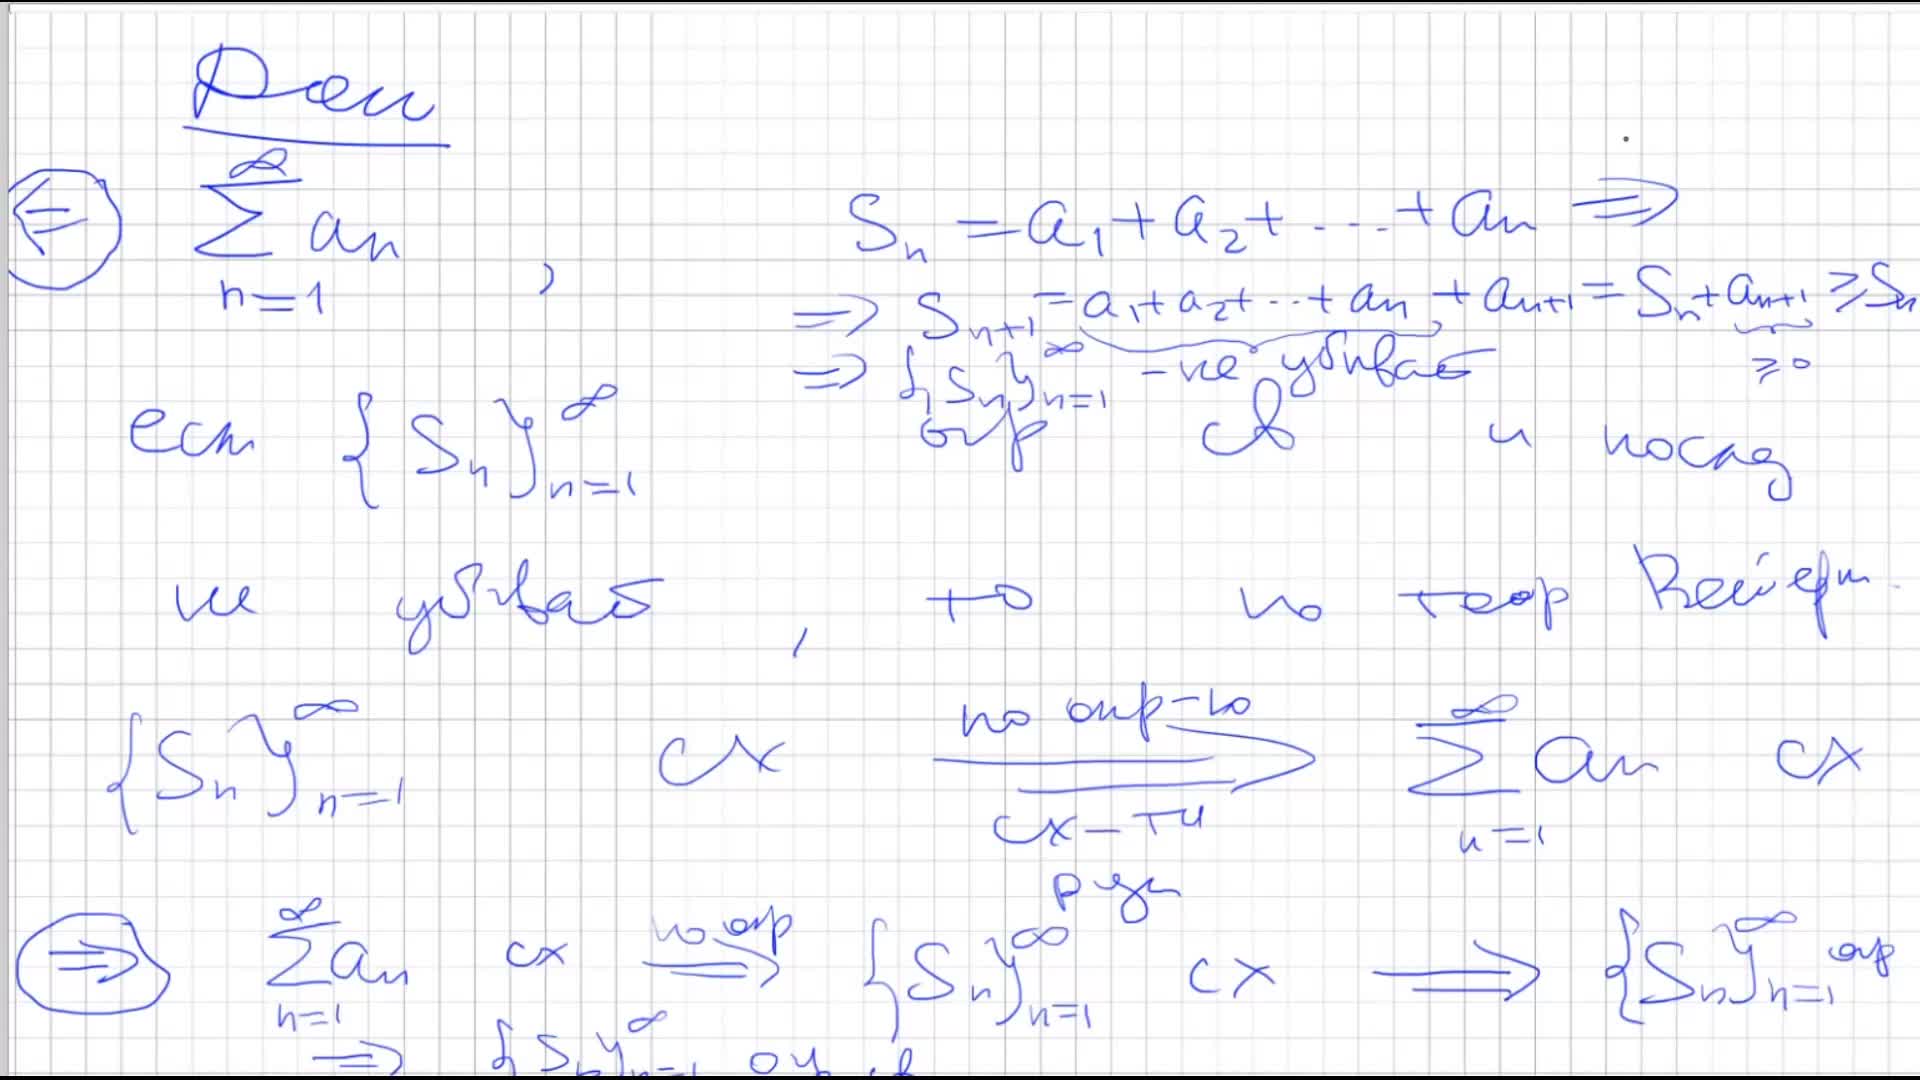 Док
⇐ ∑_{n=1}^{∞} a_n , S_n = a_1 + a_2 + ... + a_n ⇒
⇒ S_{n+1} = a_1 + a_2 + ... + a_n + a_{n+1} = S_n + a_{n+1} ≥ S_n
≥ 0
⇒ {S_n}_{n=1}^{∞} - не убывает
если {S_n}_{n=1}^{∞} огр св и послед
не убывает , то по теор Вейерш.
{S_n}_{n=1}^{∞} сх по опр-ю сх-ти ряда ⇒ ∑_{n=1}^{∞} a_n сх
⇒ ∑_{n=1}^{∞} a_n сх по опр ⇒ {S_n}_{n=1}^{∞} сх ⇒ {S_n}_{n=1}^{∞} огр
⇒ {S_n}_{n=1}^{∞}